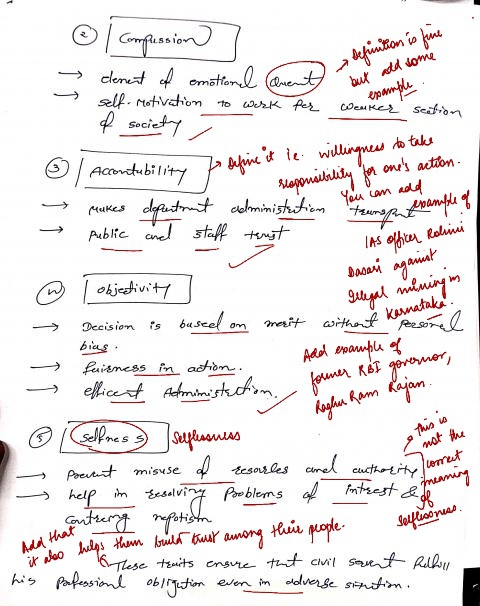 ② Compassion
Definition is fine
but add some
example.
→ element of emotional
→ self-motivation to work for weaker section
of society
③ Accountability
→ Define it i.e. willingness to take
responsibility for one's action.
You can add
example of
IAS officer Rohini
Dasari against
Illegal mining in
Karnataka.
→ Makes department administration
→ Public and staff trust
Objectivity
→ Decision is based on merit without personal
bias.
→ fairness in action.
→ efficent Administration.
Add example of
former RBI governor,
Raghu Ram Rajan.
⑤ Selfness Selflessness
→ Prevent misuse of and authority
→ help in resolving Problems of interest &
nepotism
this is
not the
correct
meaning
of
selflessness.
Add that
it also helps them build trust among their people.
These traits ensure that civil servent
his Professional obligation even in adverse